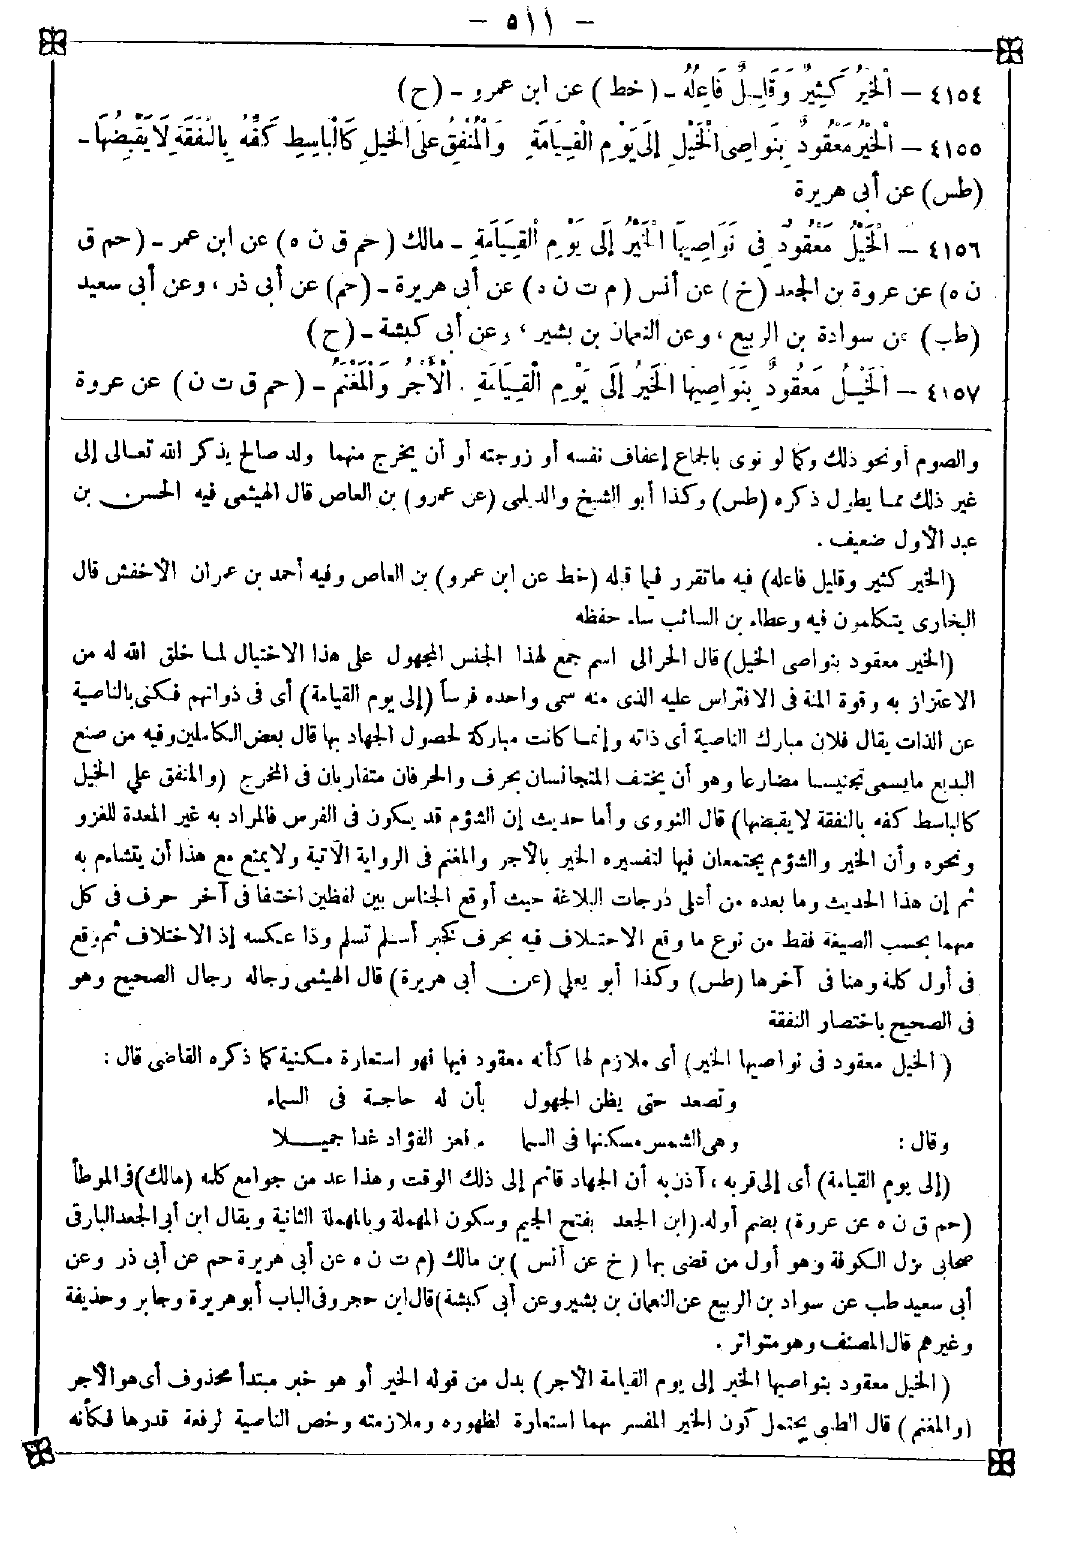 - ٥١١ -
٤١٥٤ - الْخَيْرُ كَثِيرٌ وَقَلِيلٌ فَاعِلُهُ - (خط) عن ابن عمرو - (ح)
٤١٥٥ - الْخَيْرُ مَعْقُودٌ بِنَوَاصِى الْخَيْلِ إِلَى يَوْمِ الْقِيَامَةِ وَالْمُنْفِقُ عَلَى الْخَيْلِ كَالْبَاسِطِ كَفَّهُ بِالنَّفَقَةِ لَا يَقْبِضُهَا -
(طس) عن أبى هريرة
٤١٥٦ - الْخَيْلُ مَعْقُودٌ فِى نَوَاصِيهَا الْخَيْرُ إِلَى يَوْمِ الْقِيَامَةِ - مالك (حم ق ن ه) عن ابن عمر - (حم ق
ن ه) عن عروة بن الجعد (خ) عن أنس (م ت ن ه) عن أبى هريرة - (حم) عن أبى ذر ، وعن أبى سعيد
(طب) عن سوادة بن الربيع ، وعن النعمان بن بشير ، وعن أبى كبشة - (ح)
٤١٥٧ - الْخَيْلُ مَعْقُودٌ بِنَوَاصِيهَا الْخَيْرُ إِلَى يَوْمِ الْقِيَامَةِ . الْأَجْرُ وَالْمَغْنَمُ - (حم ق ت ن) عن عروة
والصوم أو نحو ذلك وكما لو نوى بالجماع إعفاف نفسه أو زوجته أو أن يخرج منهما ولد صالح يذكر الله تعالى إلى
غير ذلك مما يطول ذكره (طس) وكذا أبو الشيخ والديلمى (عن عمرو) بن العاص قال الهيثمى فيه الحسن بن
عبد الأول ضعيف .
(الخير كثير وقليل فاعله) فيه ما تقرر فيما قبله (خط عن ابن عمرو) بن العاص وفيه أحمد بن عمران الاخفش قال
البخارى يتكلمون فيه وعطاء بن السائب ساء حفظه
(الخير معقود بنواصى الخيل) قال الحرالى اسم جمع لهذا الجنس المجهول على هذا الاختيال لما خلق الله له من
الاعتزاز به وقوة المنة فى الافتراس عليه الذى منه سمى واحده فرساً (إلى يوم القيامة) أى فى ذواتهم فكنى بالناصية
عن الذات يقال فلان مبارك الناصية أى ذاته وإنما كانت مباركة لحصول الجهاد بها قال بعض الكاملين وفيه من صنع
البديع ما يسمى تجنيسا مضارعا وهو أن يختلف المتجانسان بحرف والحرفان متقاربان فى المخرج (والمنفق على الخيل
كالباسط كفه بالنفقة لا يقبضها) قال النووى وأما حديث إن الشؤم قد يكون فى الفرس فالمراد به غير المعدة للغزو
ونحوه وأن الخير والشؤم يجتمعان فيها لتفسيره الخير بالأجر والمغنم فى الرواية الآتية ولا يمنع مع هذا أن يتشاءم به
ثم إن هذا الحديث وما بعده من أعلى درجات البلاغة حيث أوقع الجناس بين لفظين اختلفا فى آخر حرف فى كل
منهما بحسب الصيغة فقط من نوع ما وقع الاختلاف فيه بحرف كخبر أسلم تسلم وذا عكسه إذ الاختلاف ثم وقع
فى أول كلمة وهنا فى آخرها (طس) وكذا أبو يعلي (عن أبى هريرة) قال الهيثمى رجاله رجال الصحيح وهو
فى الصحيح باختصار النفقة
(الخيل معقود فى نواصيها الخير) أى ملازم لها كأنه معقود فيها فهو استعارة مكنية كما ذكره القاضى قال :
وتصعد حتى يظن الجهول بأن له حاجة فى السماء
وقال : وهى الشمس مسكنها فى السما الفؤاد غدا جميلا
(إلى يوم القيامة) أى إلى قربه ، آذن به أن الجهاد قائم إلى ذلك الوقت وهذا عد من جوامع كلمه (مالك) فى الموطأ
(حم ق ن ه عن عروة) بضم أوله (ابن الجعد بفتح الجيم وسكون المهملة وبالمهملة الثانية ويقال ابن أبى الجعد البارقى
صحابى نزل الكوفة وهو أول من قضى بها (خ عن أنس) بن مالك (م ت ن ه عن أبى هريرة حم عن أبى ذر وعن
أبى سعيد طب عن سواد بن الربيع عن النعمان بن بشير وعن أبى كبشة) قال ابن حجر وفى الباب أبو هريرة وجابر وحذيفة
وغيرهم قال المصنف وهو متواتر .
(الخيل معقود بنواصيها الخير إلى يوم القيامة الأجر) بدل من قوله الخير أو هو خبر مبتدأ محذوف أى هو الأجر
(والمغنم) قال الطيبى يحتمل كون الخير المفسر بهما استعارة لظهوره وملازمته وخص الناصية لرفعة قدرها فكأنه